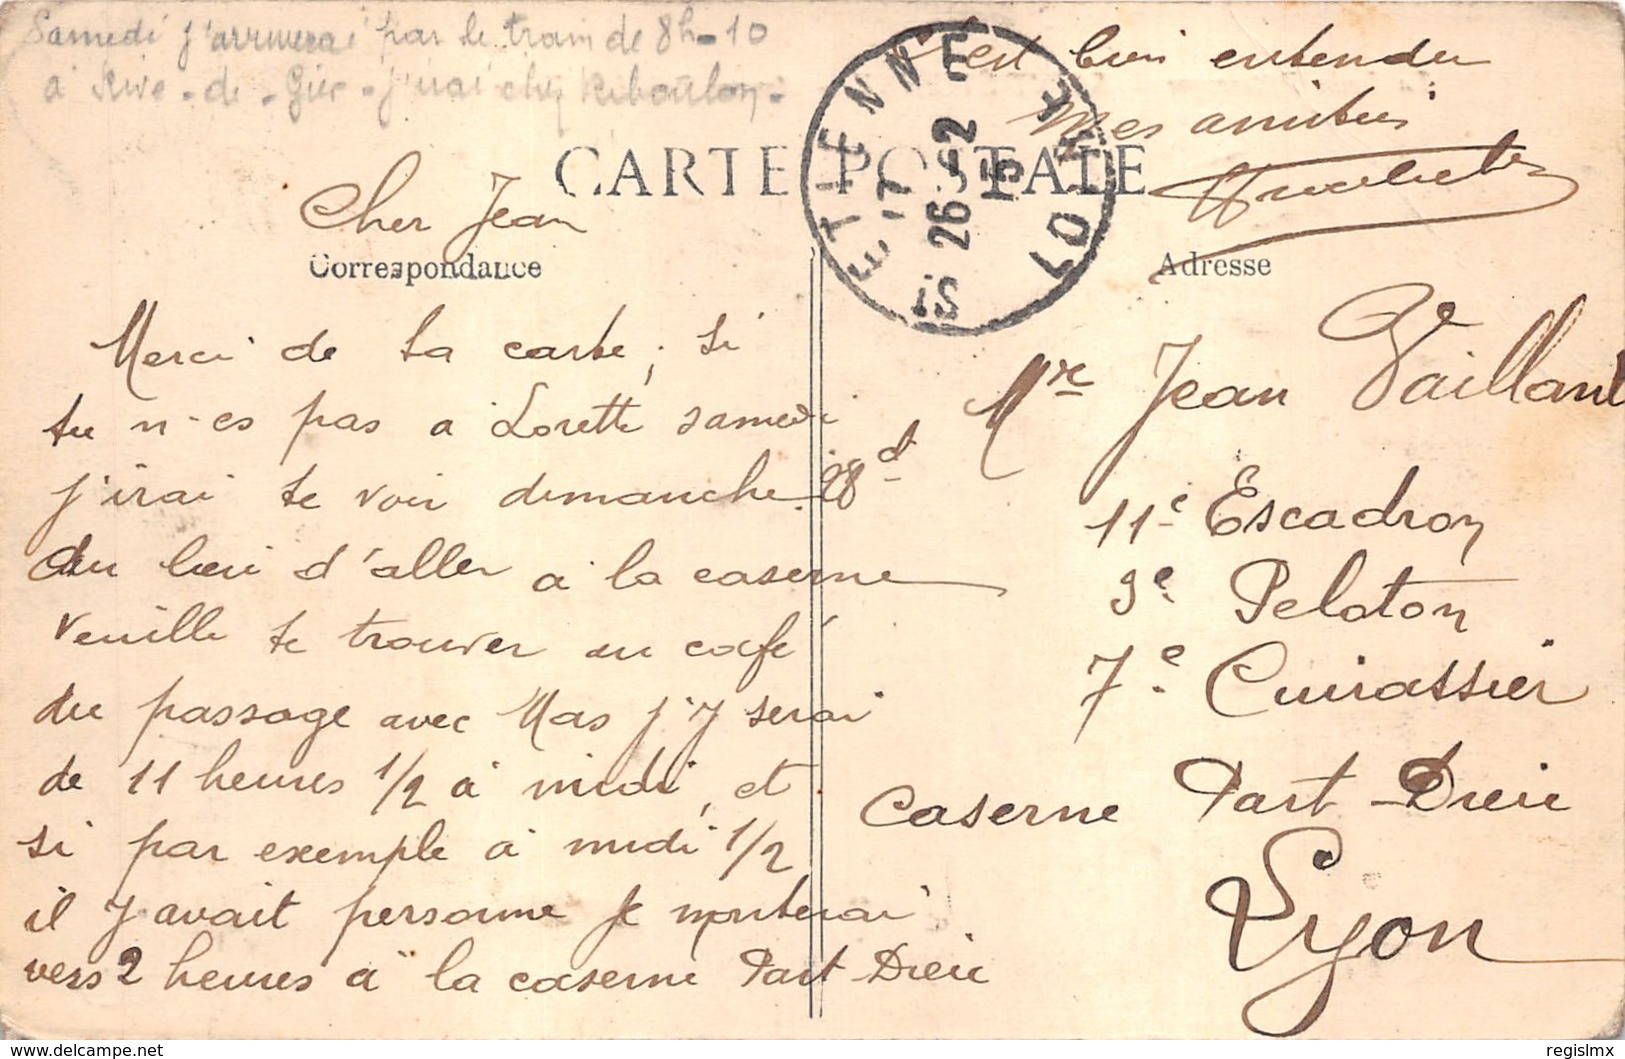 Samedi j'arriverai par le train de 8h-10
à Rive-de-Gier - j'irai chez Riboulon-
c'est bien entendu
Mes amitiés
CARTE POSTALE
ST ETIENNE LOIRE
17
15
26
2
Cher Jean
Correspondance
Merci de ta carte, si
tu n-es pas a Lorette samedi
j'irai te voir dimanche 28 d
au lieu d'aller a la caserne
veuille te trouver au café
du passage avec Mas j'y serai
de 11 heures 1/2 à midi, et
si par exemple à midi 1/2
il y avait personne je monterai
vers 2 heures à la caserne Part Dieu
Adresse
Mr Jean Vaillant
11e Escadron
3e Peloton
7e Cuirassier
Caserne Part-Dieu
Lyon
regislmx